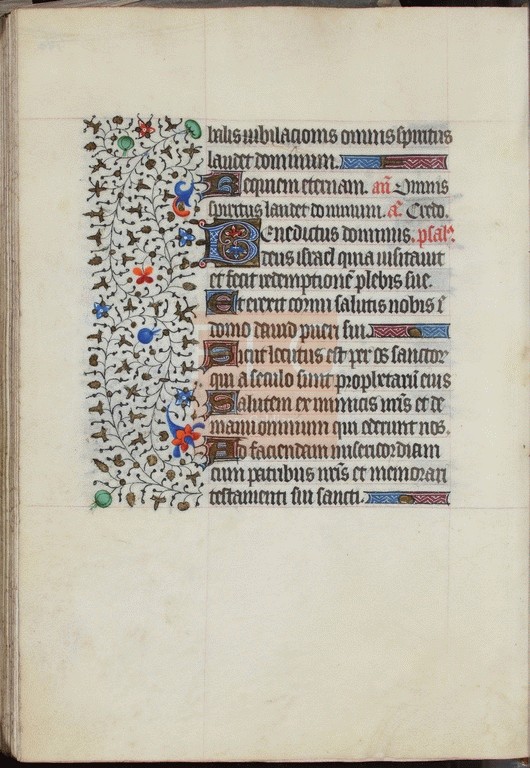 balis iubilacionis omnis spiritus
laudet dominum.
Requiem eternam. añ Omnis
spiritus laudet dominum. a᷉. Credo.
Benedictus dominus. psal᷉.
deus israel quia uisitauit
et fecit redemptionē plebis sue.
Et erexit cornu salutis nobis ī
domo dauid pueri sui.
Sicut locutus est per os sanctor
qui a seculo sunt prophetarū eius
Salutem ex inimicis nr̄is et de
manu omnium qui oderunt nos.
Ad faciendam misericordiam
cum patribus nr̄is et memorari
testamenti sui sancti.